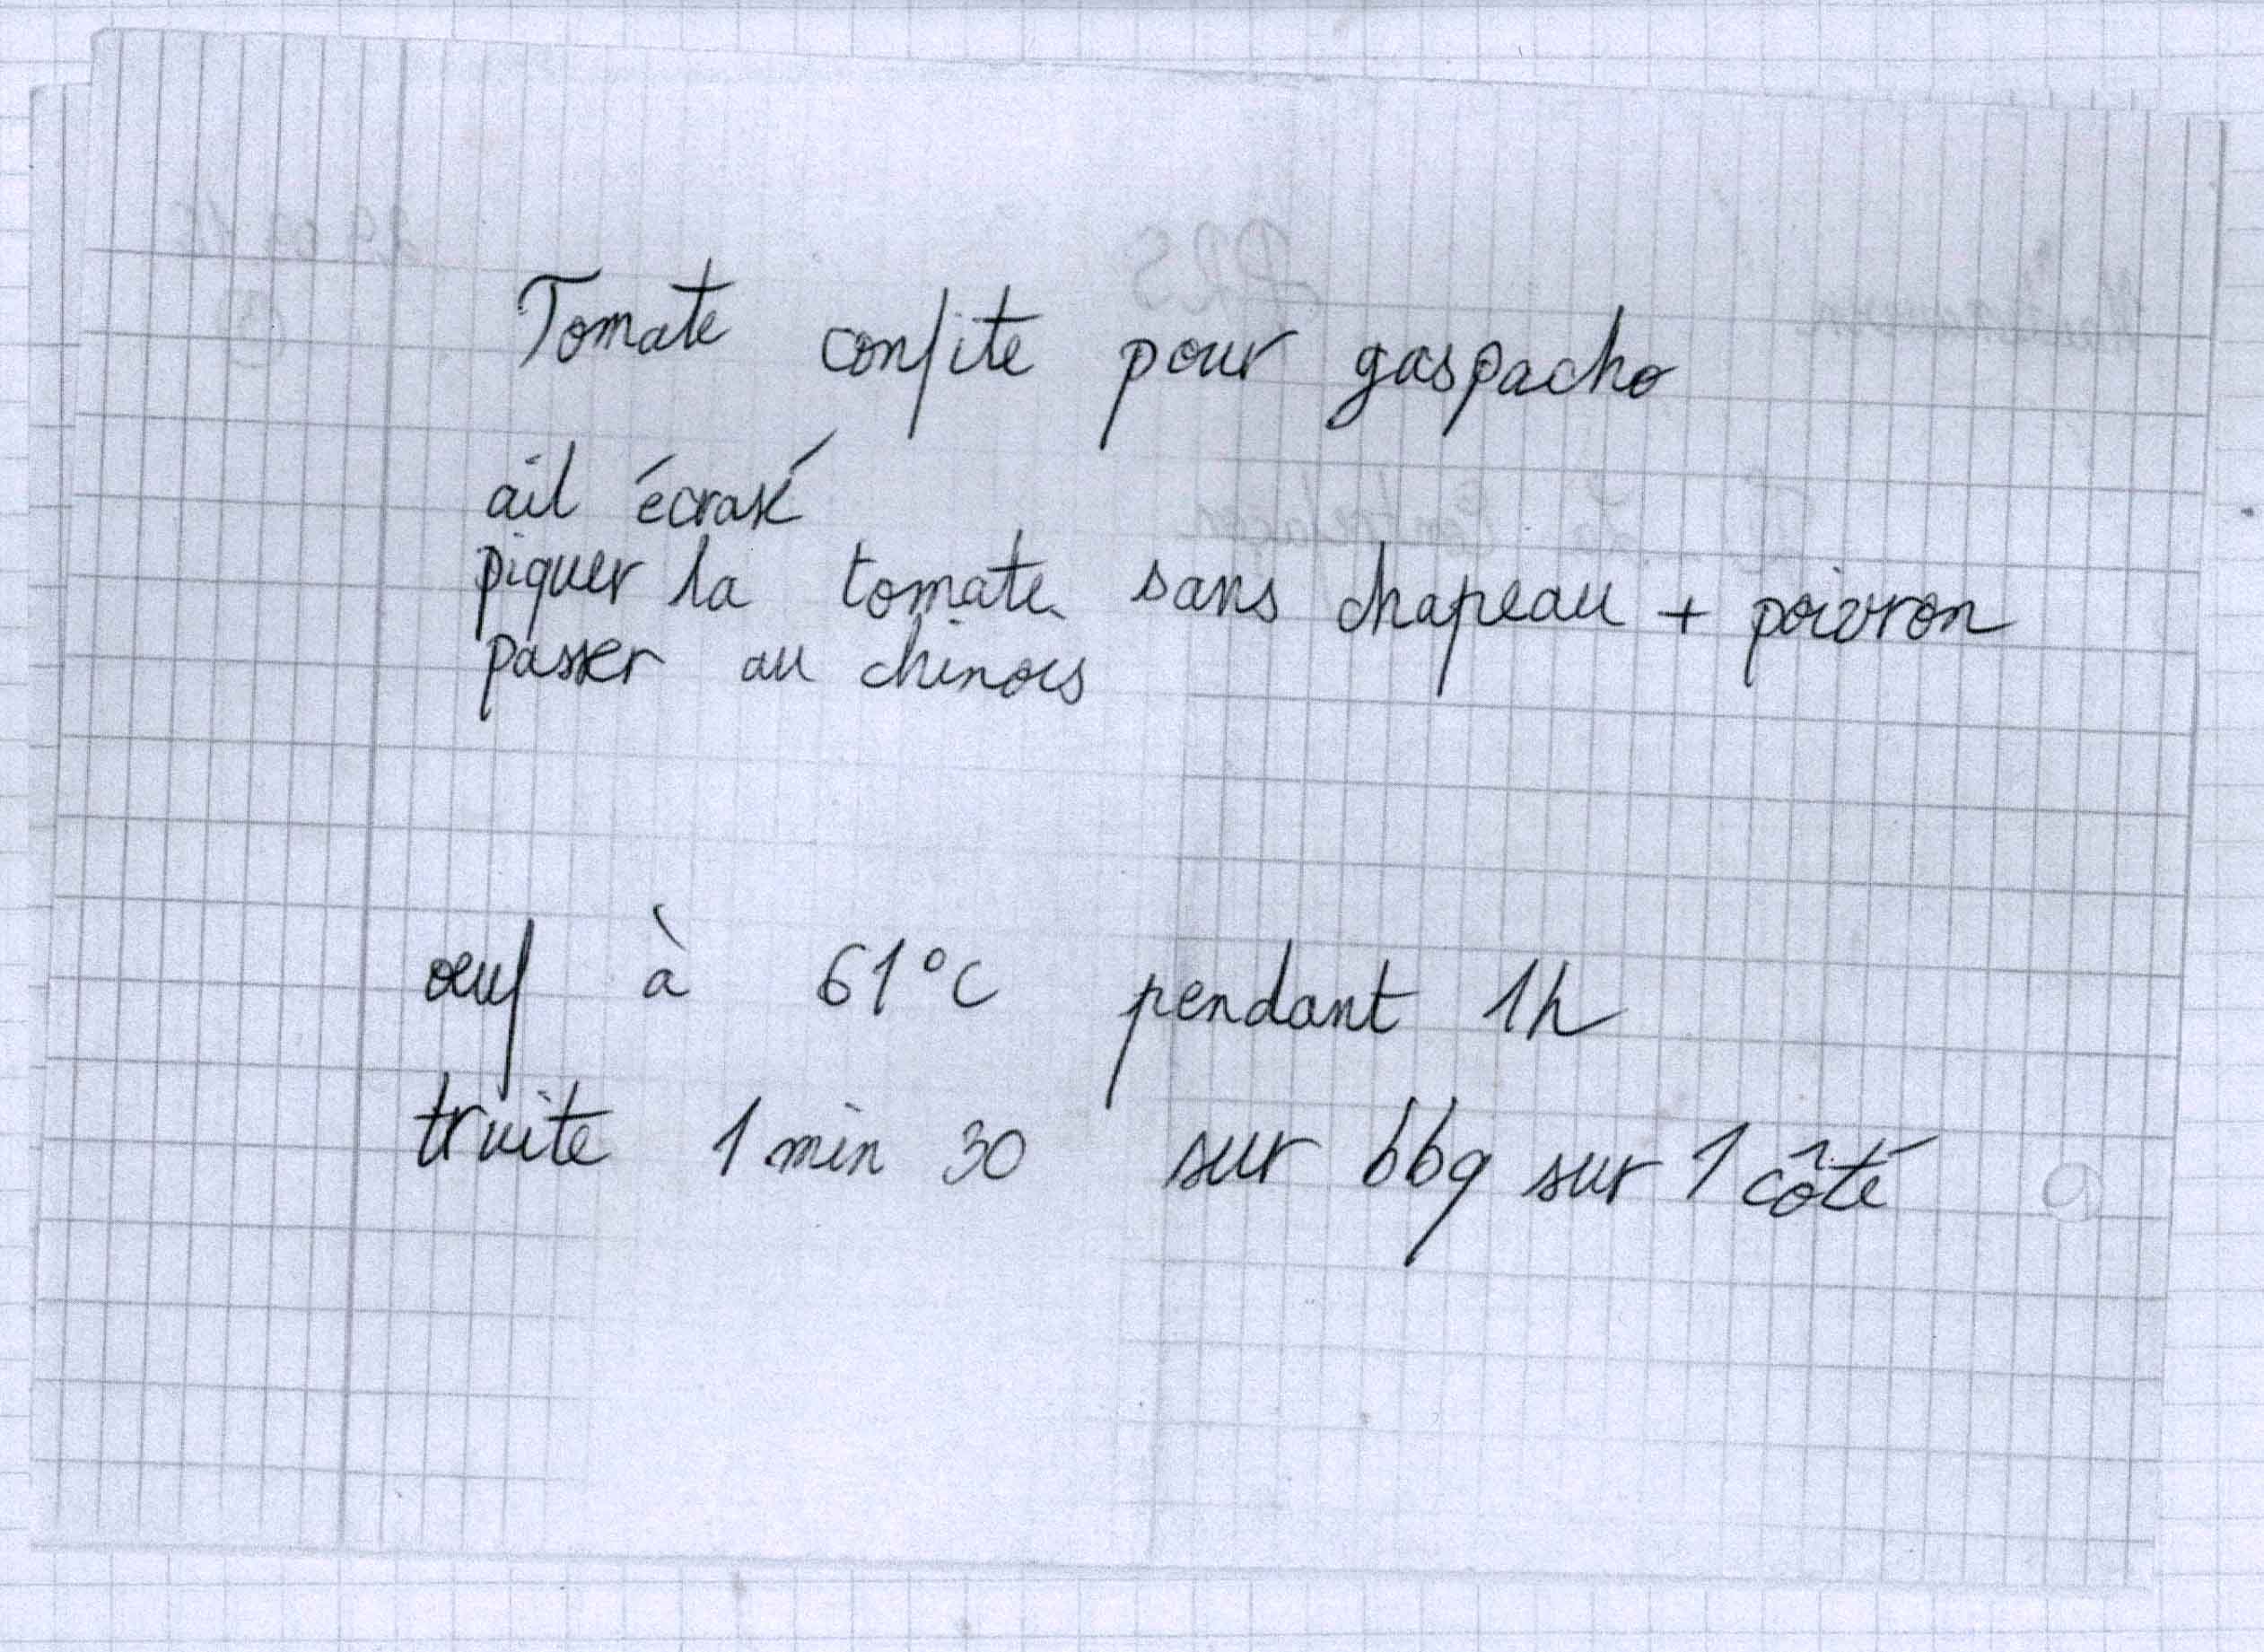 Tomate confite pour gaspacho
ail écrasé
piquer la tomate sans chapeau + poivron
passer au chinois
oeuf à 61°C pendant 1h
truite 1 min 30 sur bbq sur 1 côté